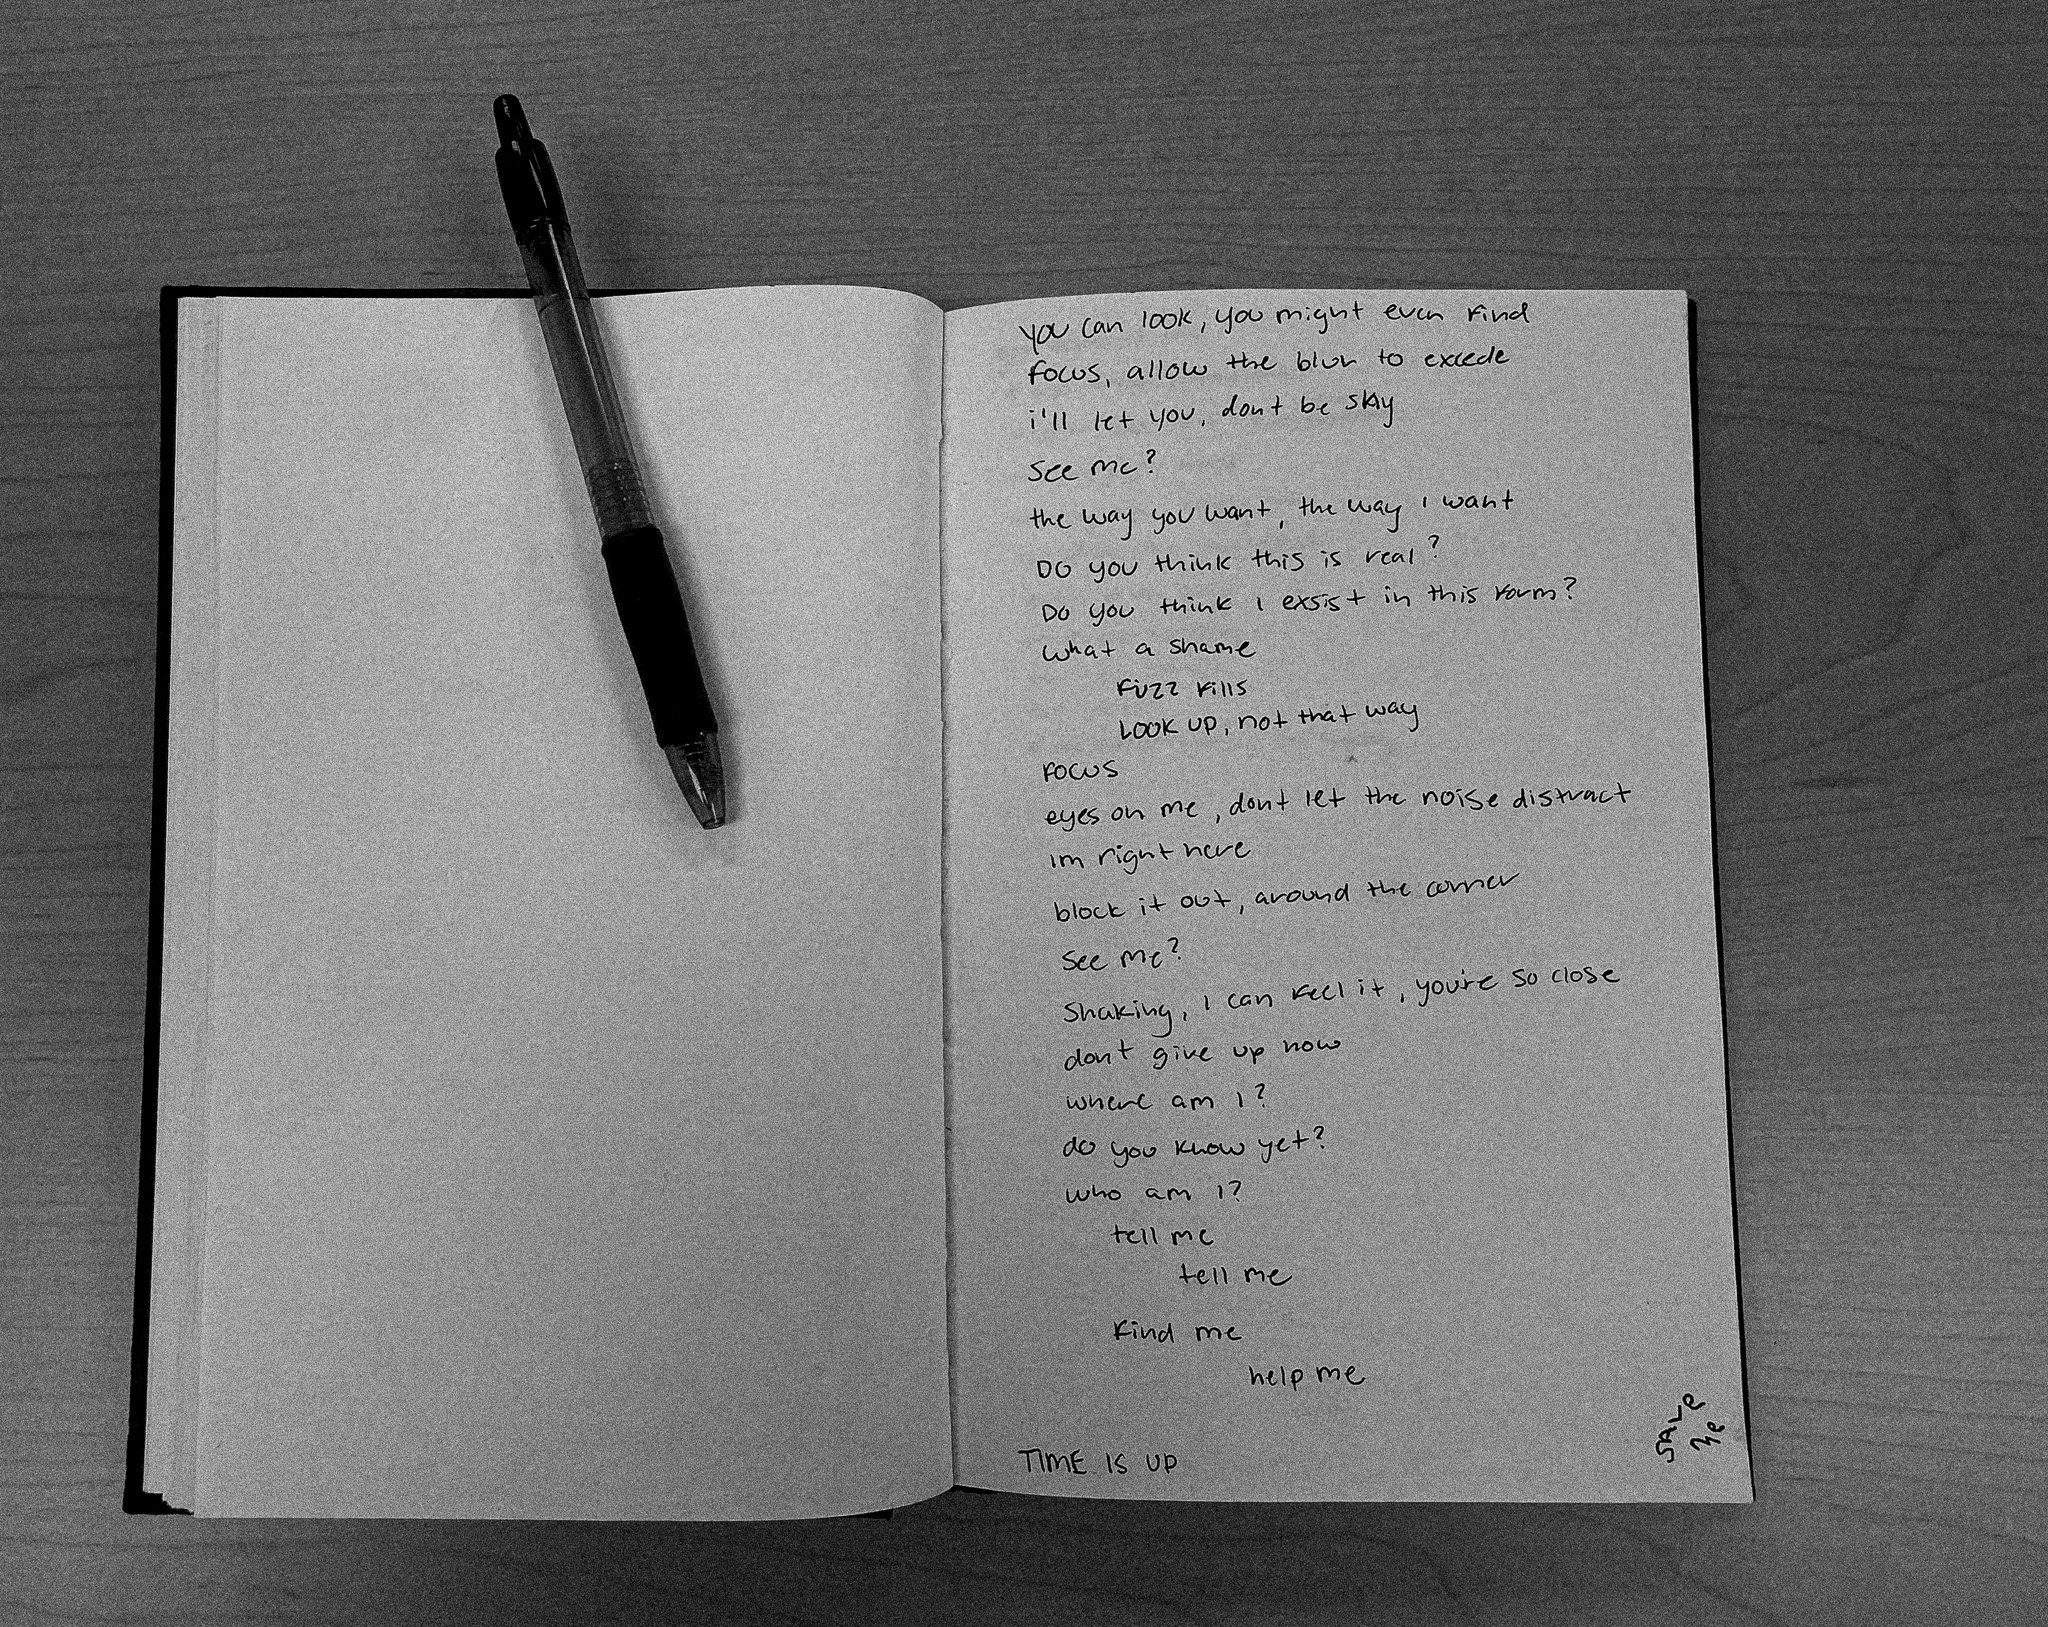 you can look, you might even find
focus, allow the blur to excede
i'll let you, dont be shy
see me?
the way you want, the way I want
Do you think this is real?
Do you think I exsist in this form?
what a shame
fuzz fills
LOOK UP, not that way
FOCUS
eyes on me, dont let the noise distract
Im right here
block it out, around the corner
see me?
Shaking, I can feel it, you're so close
don't give up now
where am I?
do you know yet?
who am I?
tell me
tell me
find me
help me
SAVE
Me
TIME IS UP